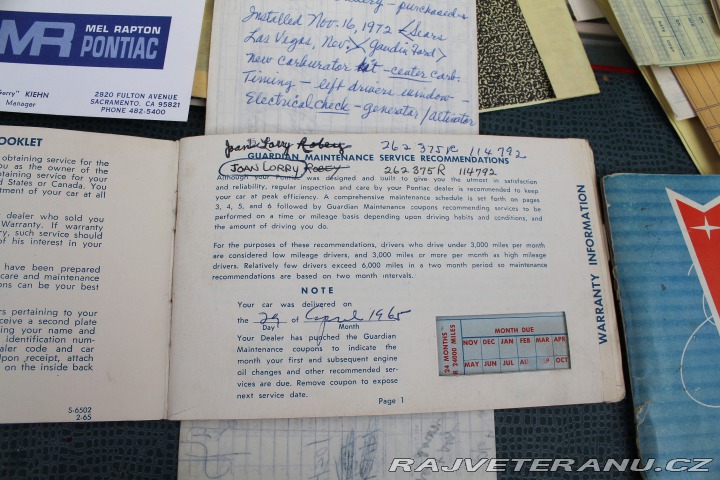 MR MEL RAPTON
PONTIAC
KIEHN
Manager
2820 FULTON AVENUE
SACRAMENTO, CA 95821
PHONE 482-5400
purchased
Installed Nov. 16, 1972 <Sears
Las Vegas, Nev.> <Gaudin Ford>
New Carburator kit - center carb.
Timing - left drivers window -
Electrical check - generator/altinator
OOKLET
obtaining service for the
ou as the owner of the
taining service for your
d States or Canada. You
tment of your car at all
dealer who sold you
Warranty. If warranty
ry, such service should
of his interest in your
have been prepared
care and maintenance
ons can be your best
rs pertaining to your
ceive a second plate
ing your name and
identification num-
aler code and car
pon receipt, attach
on the inside back
S-6502
2-65
Joan Lorry Robey 262 375R 114792
GUARDIAN MAINTENANCE SERVICE RECOMMENDATIONS
JOAN LORRY ROBEY 262375R 114792
Although your Pontiac was designed and built to give you the utmost in satisfaction
and reliability, regular inspection and care by your Pontiac dealer is recommended to keep
your car at peak efficiency. A comprehensive maintenance schedule is set forth on pages
3, 4, 5, and 6 followed by Guardian Maintenance coupons recommending services to be
performed on a time or mileage basis depending upon driving habits and conditions, and
the amount of driving you do.
For the purposes of these recommendations, drivers who drive under 3,000 miles per month
are considered low mileage drivers, and 3,000 miles or more per month as high mileage
drivers. Relatively few drivers exceed 6,000 miles in a two month period so maintenance
recommendations are based on two month intervals.
NOTE
Your car was delivered on
the 29 of April 1965
Day Month
Your Dealer has punched the Guardian
Maintenance coupons to indicate the
month your first and subsequent engine
oil changes and other recommended ser-
vices are due. Remove coupon to expose
next service date.
Page 1
24 MONTHS
R 24000 MILES
MONTH DUE
NOV DEC JAN FEB MAR APR
MAY JUN JUL OCT
WARRANTY INFORMATION
RAJVETERANU.CZ